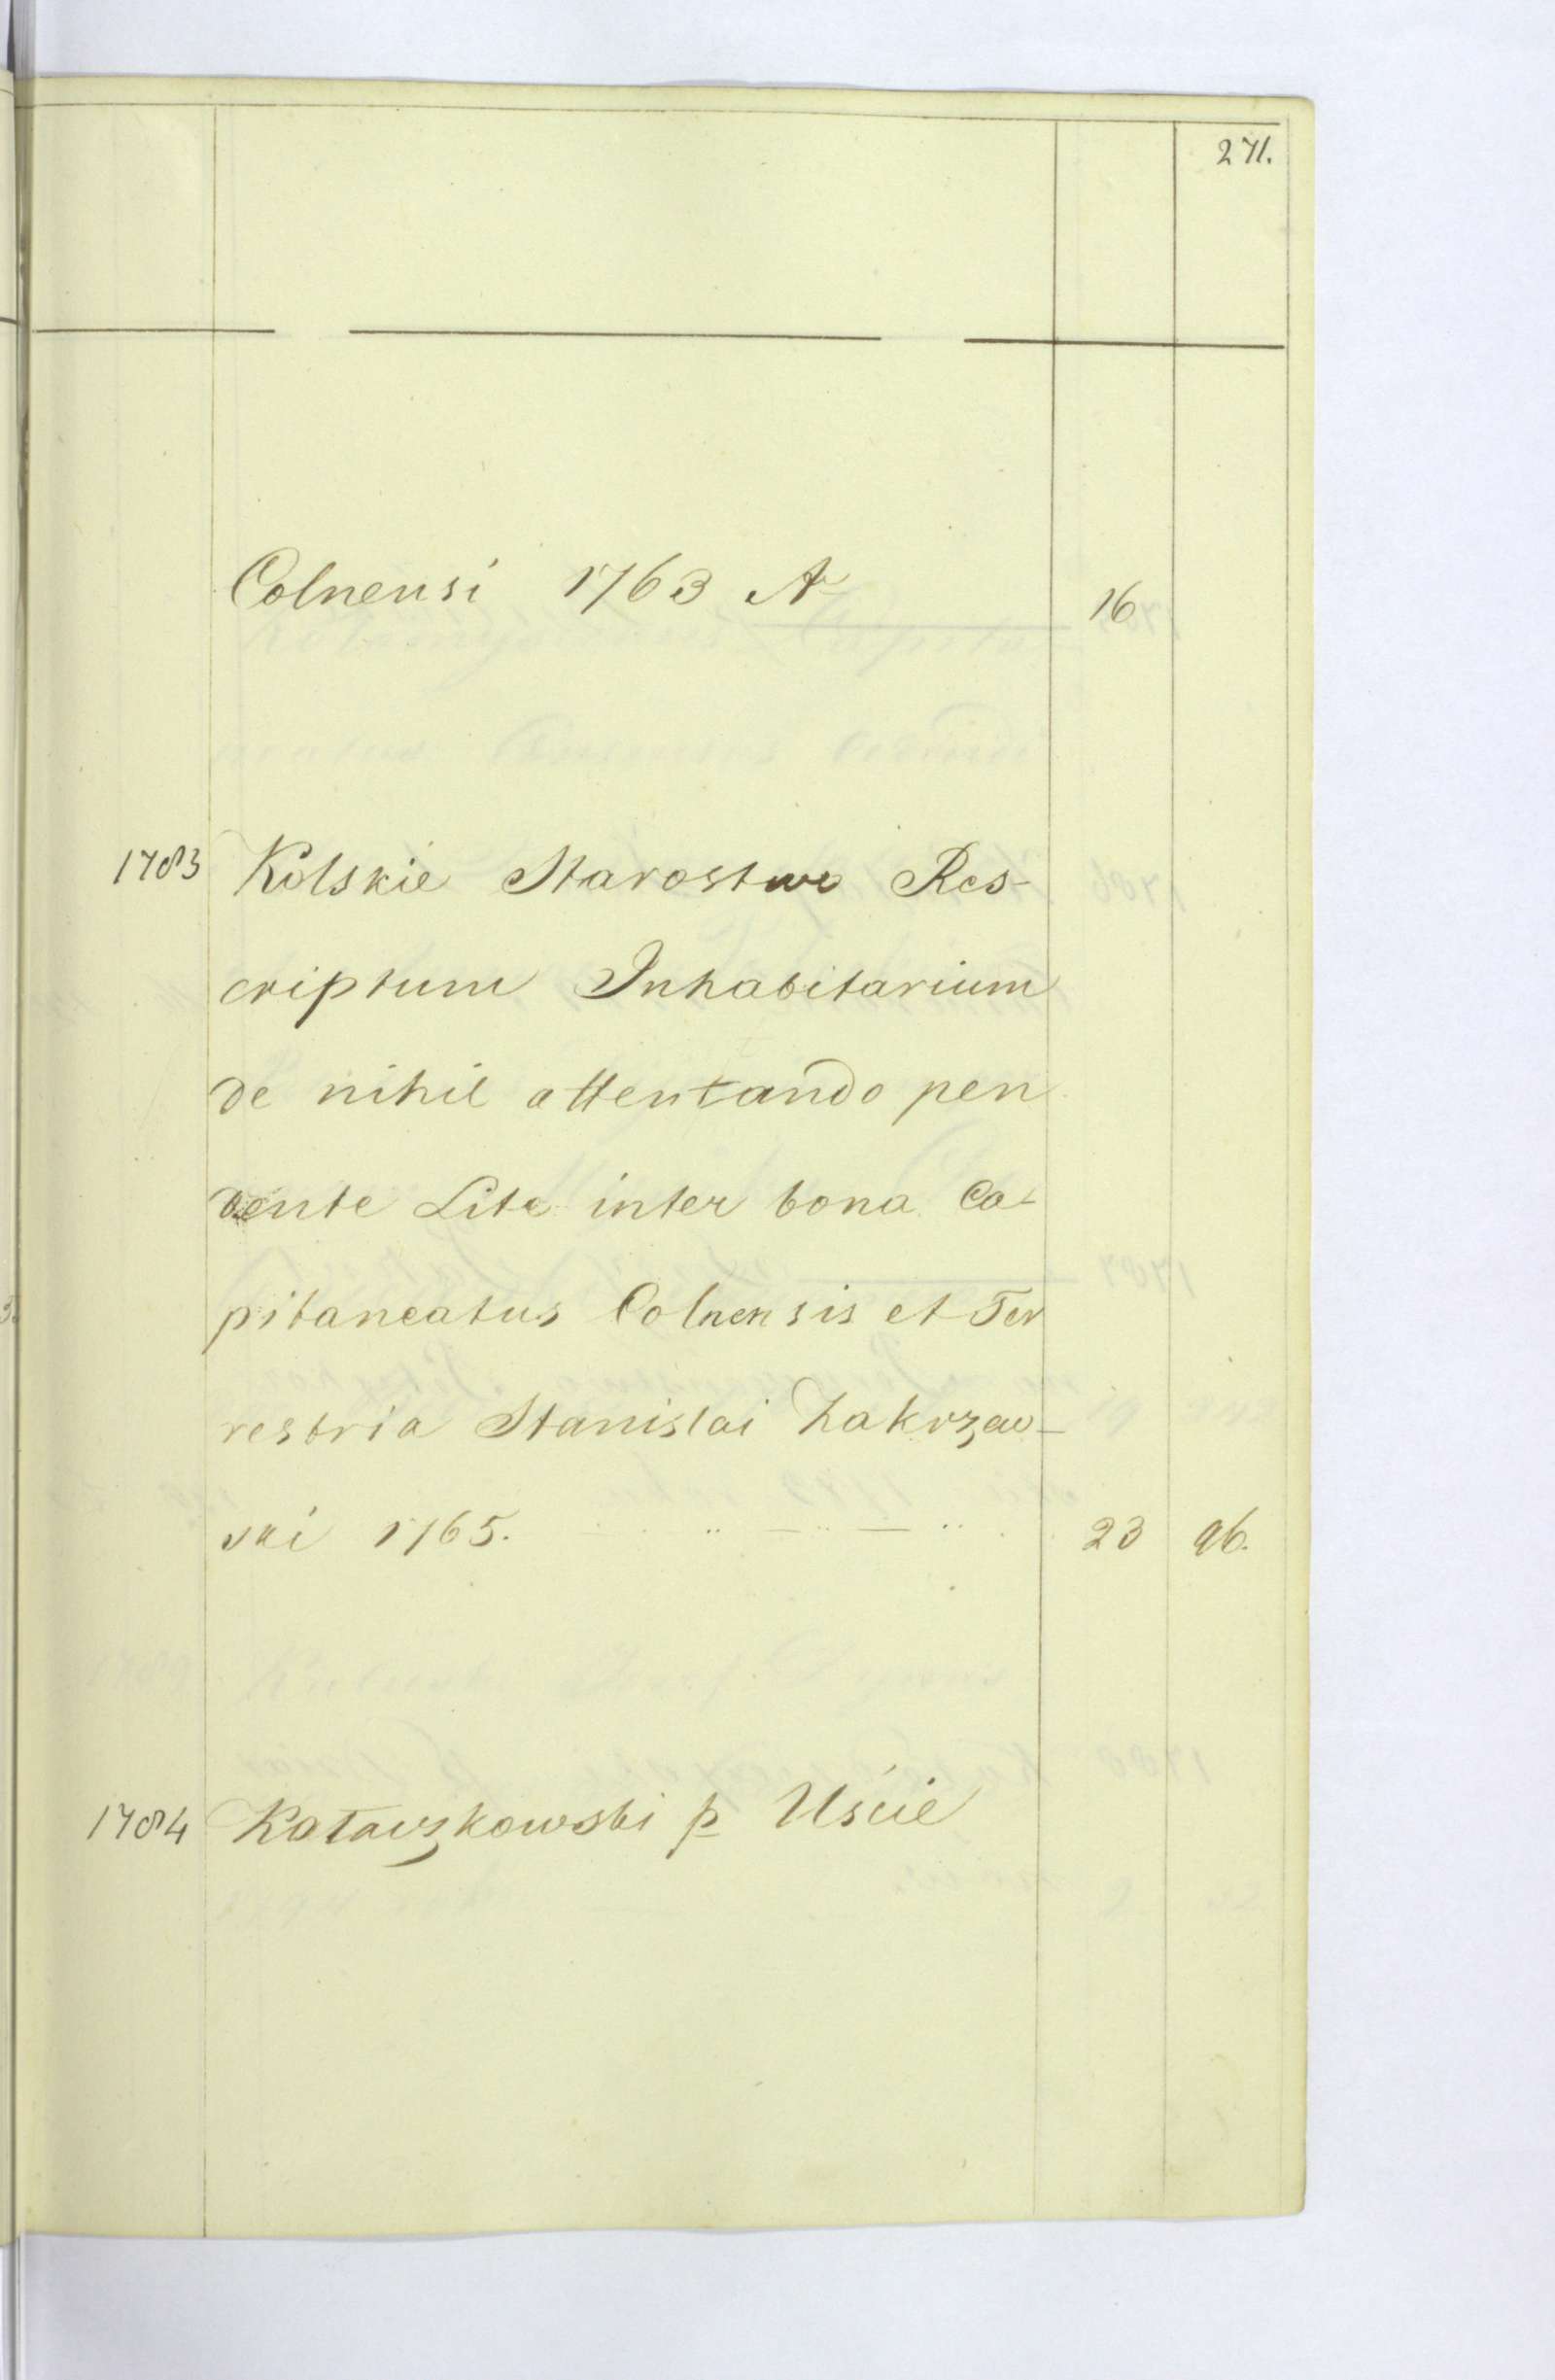 271.
Colnensi 1763 A 16
1783 Kolskie Starostwo Res-
criptum Inhabitarium
de nihil attentando pen
dente Lite inter bona Ca-
pitaneatus Colnensis et Ter
restria Stanislai Zakrzew-
ski 1765. 23 96.
1784 p Uście